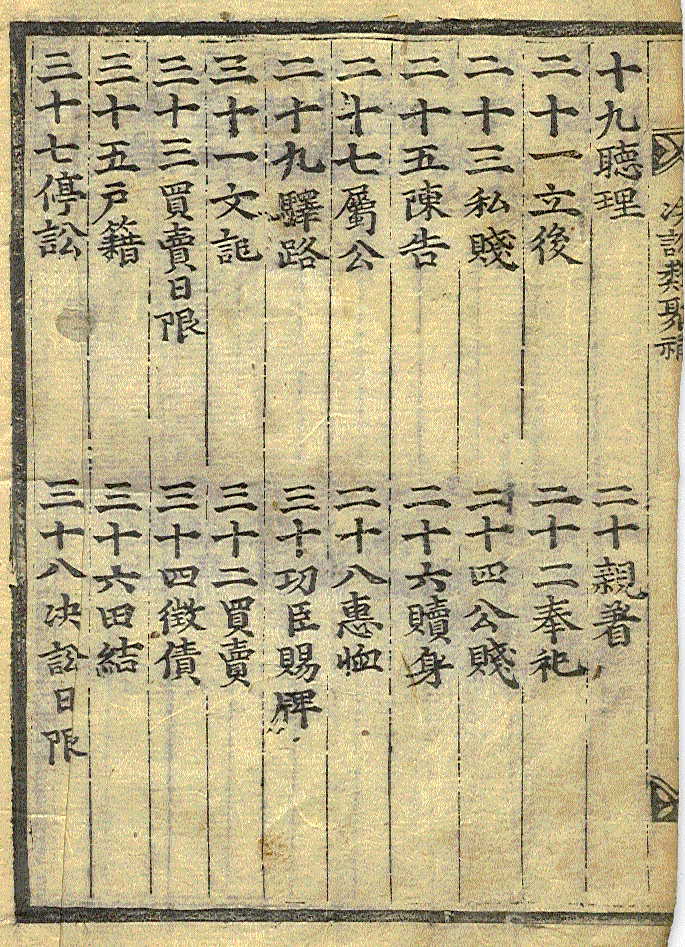 决訟類聚補
十九聽理 二十親着
二十一立後 二十二奉祀
二十三私賤 二十四公賤
二十五陳告 二十六贖身
二十七屬公 二十八惠恤
二十九驛路 三十功臣賜牌
三十一文記 三十二買賣
三十三買賣日限 三十四徵債
三十五戶籍 三十六田結
三十七停訟 三十八决訟日限